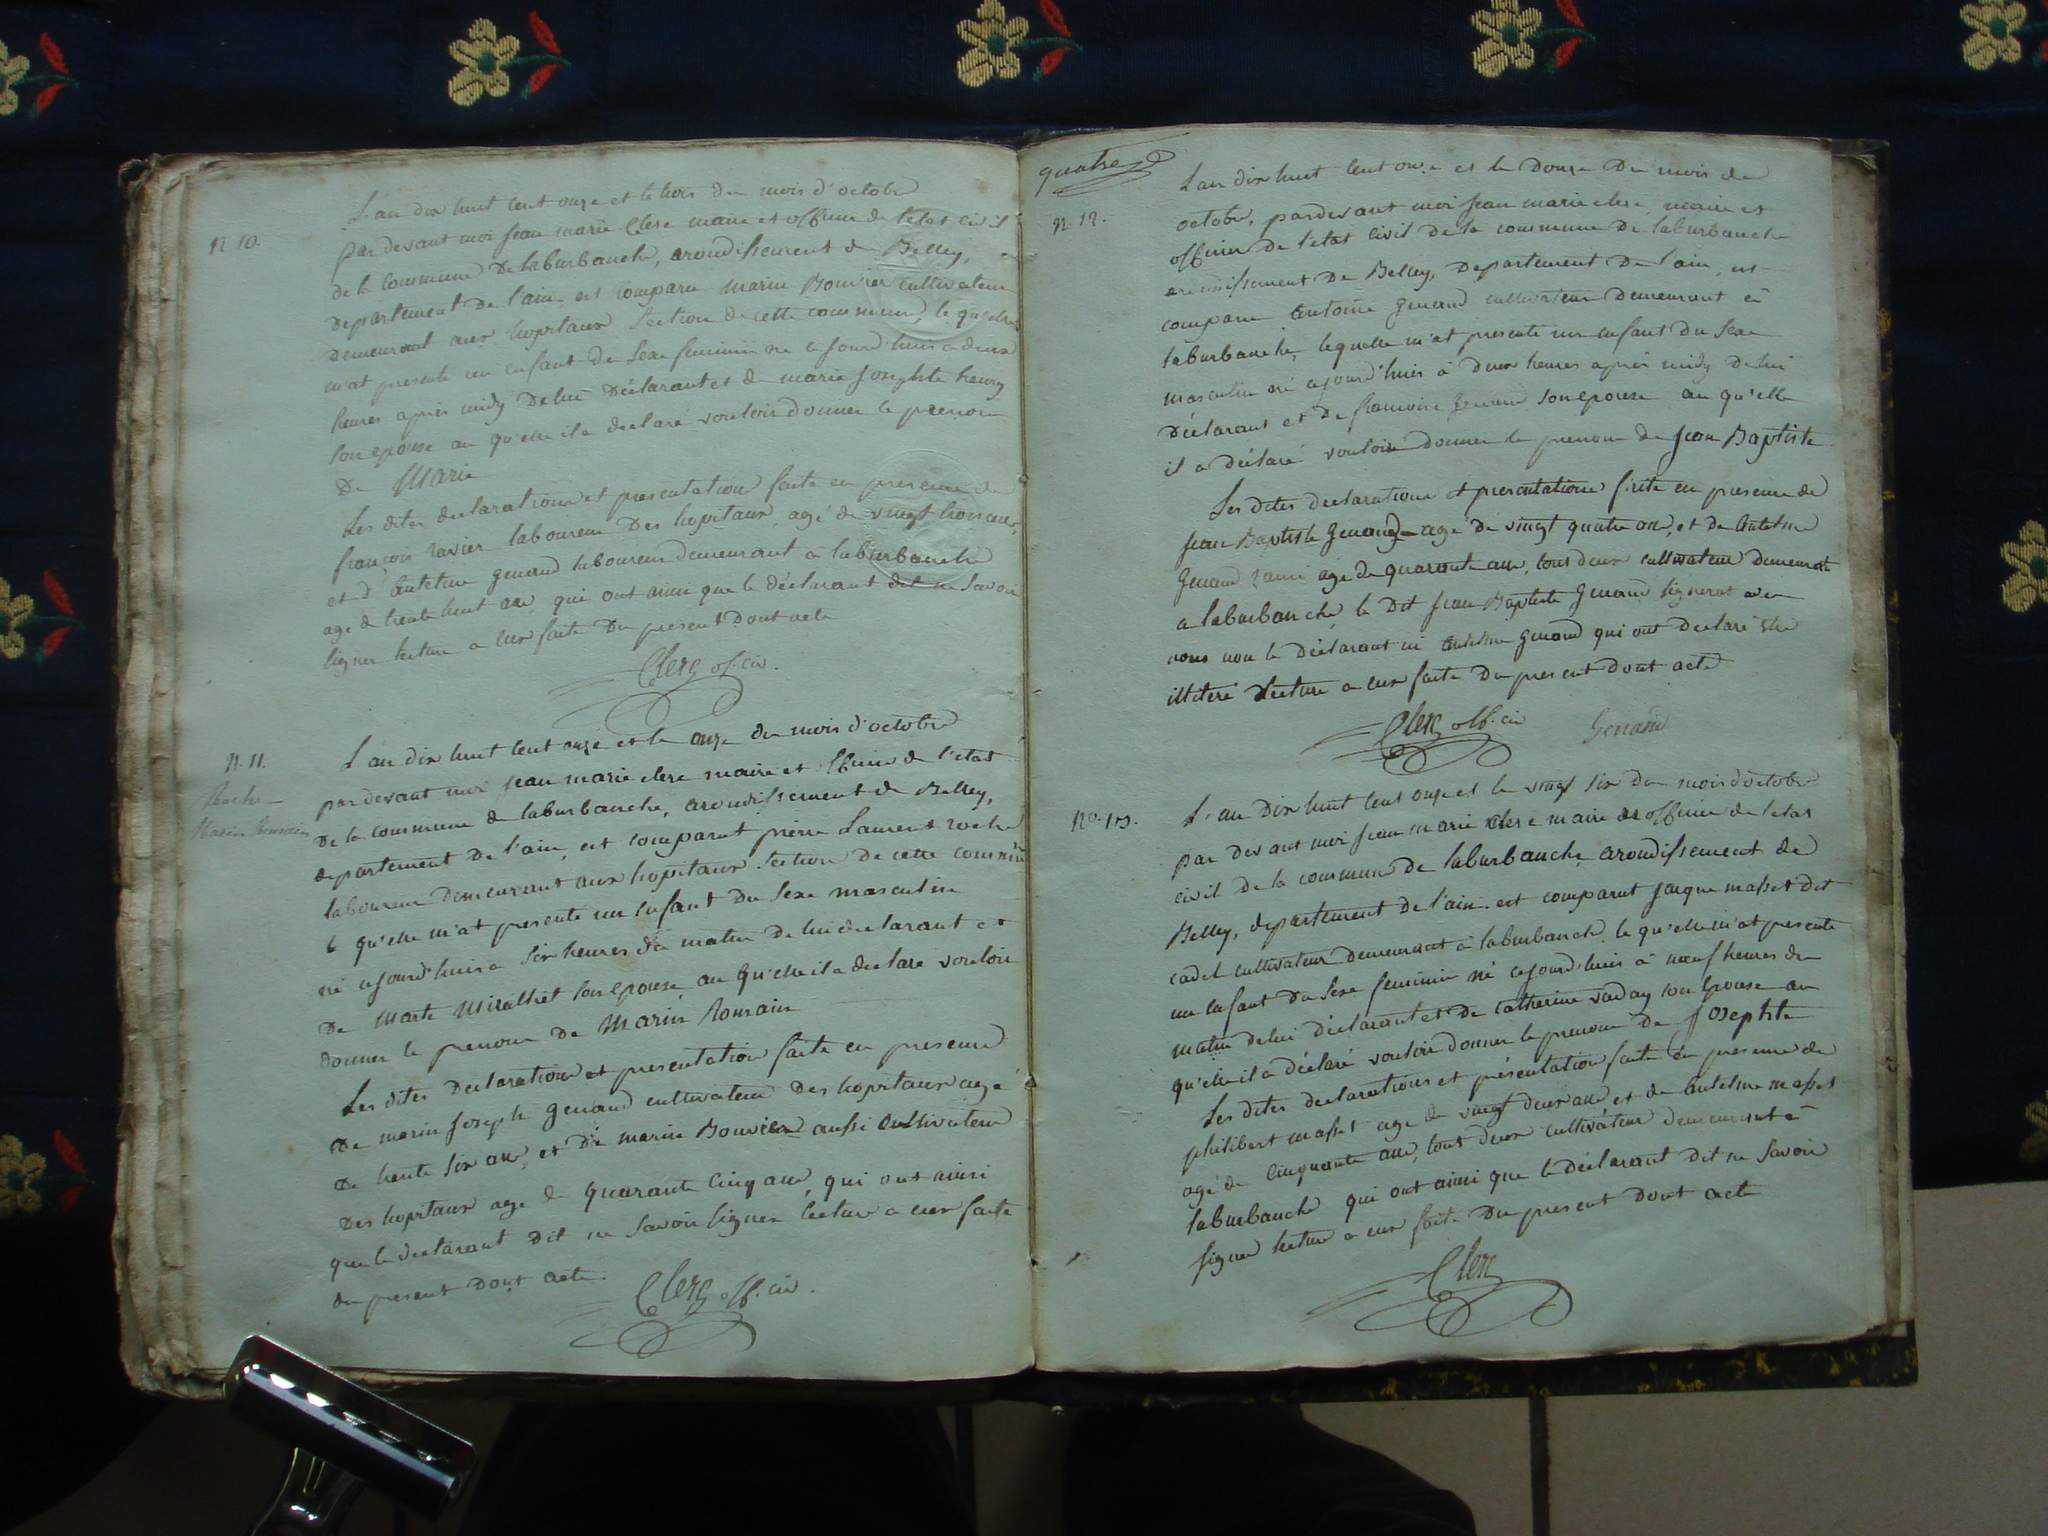 N. 10.
L'an dix huit cent onze et le trois du mois d'octobre
par devant moi jean marie Clerc maire et officier de l'etat civil
de la commune de laburbanche, arondissement de Belley,
departement de l'ain est comparu marin Bouvier cultivateur
demeurant aux hopitaux section de cette commune, le qu'elle
m'at presente un enfant de sexe feminin né cejourd'huis a deux
heures apres midy de lui déclarant et de marie josephte henry
son epouse au qu'elle il a declaré vouloir donner le prenom
de Marie
Les dites declarations et presentation faite en presence de
françois ravier laboureur des hopitaux, agé de vingt trois ans,
et d'Antelme genaud laboureur demeurant a laburbanche
age de trente huit ans, qui ont ainsi que le déclarant dit ne savoir
signer lecture a eux faite du present dont acte
Clerc of. civ.
N. 11.
Roche
Marin Romain
L'an dix huit cent onze et le onze du mois d'octobre
par devant moi jean marie clerc maire et officier de l'etat
de la commune de laburbanche, arondissement de Belley,
departement de l'ain, est comparut pierre Laurent roche
laboureur demeurant aux hopitaux section de cette commune
le qu'elle m'at presente un enfant du sexe masculin
né cejourd'huis a six heures du matin de lui declarant et
de Marte Miralliet son epouse, au qu'elle il a declare vouloir
donner le prenom de Marin Romain
Les dites declarations et presentation faite en presence
de marin joseph genaud cultivateur des hopitaux agé
de trente six ans, et de marin Bouvier aussi cultivateur
des hopitaux age de quarante cinq ans, qui ont ainsi
que le declarant dit ne savoir signer lecture a eux faite
du present dont acte.
Clerc off. civ.
quatre
N. 12.
L'an dix huit cent onze et le douze du mois de
octobre, pardevant moi jean marie clerc, maire et
officier de l'etat civil de la commune de laburbanche
arondissement de Belley, departement de l'ain, est
comparu antoine genaud cultivateur demeurant à
laburbanche, lequelle m'at presente un enfant du sexe
masculin né cejourd'huis à deux heures apres midy de lui
déclarant et de francoise genaud son epouse au qu'elle
il a déclaré vouloir donner le prenom de jean Baptiste
Les dites declarations et presentation faite en presence de
jean Baptiste Genaud agé de vingt quatre ans, et de Antelme
Genaud age de quarante ans, tous deux cultivateur demeurant
a laburbanche, le dit jean Baptiste genaud signerat avec
nous non le déclarant ni Antelme genaud qui ont declaré etre
illiteré lecture a eux faite du present dont acte
Clerc off. civ Genaud
No. 13.
L'an dix huit cent onze et le vingt six du mois d'octobre
par devant moi jean marie clerc maire et officier de l'etat
civil de la commune de laburbanche arondissement de
Belley, departement de l'ain. est comparut jaque masset dit
cadet cultivateur demeurant à laburbanche, le qu'elle m'at presente
un enfant du sexe feminin né cejourd'huis à neuf heures du
matin de lui déclarant et de catherine varday son Epouse au
qu'elle il a déclaré vouloir donner le prenom de Josephte
Les dites declarations et présentation faite en presence de
philibert masset age de vingt deux ans et de antelme masset
agé de cinquante ans, tout deux cultivateur demeurant à
laburbanche qui ont ainsi que le déclarant dit ne savoir
signer lecture a eux faite du present dont acte
Clerc